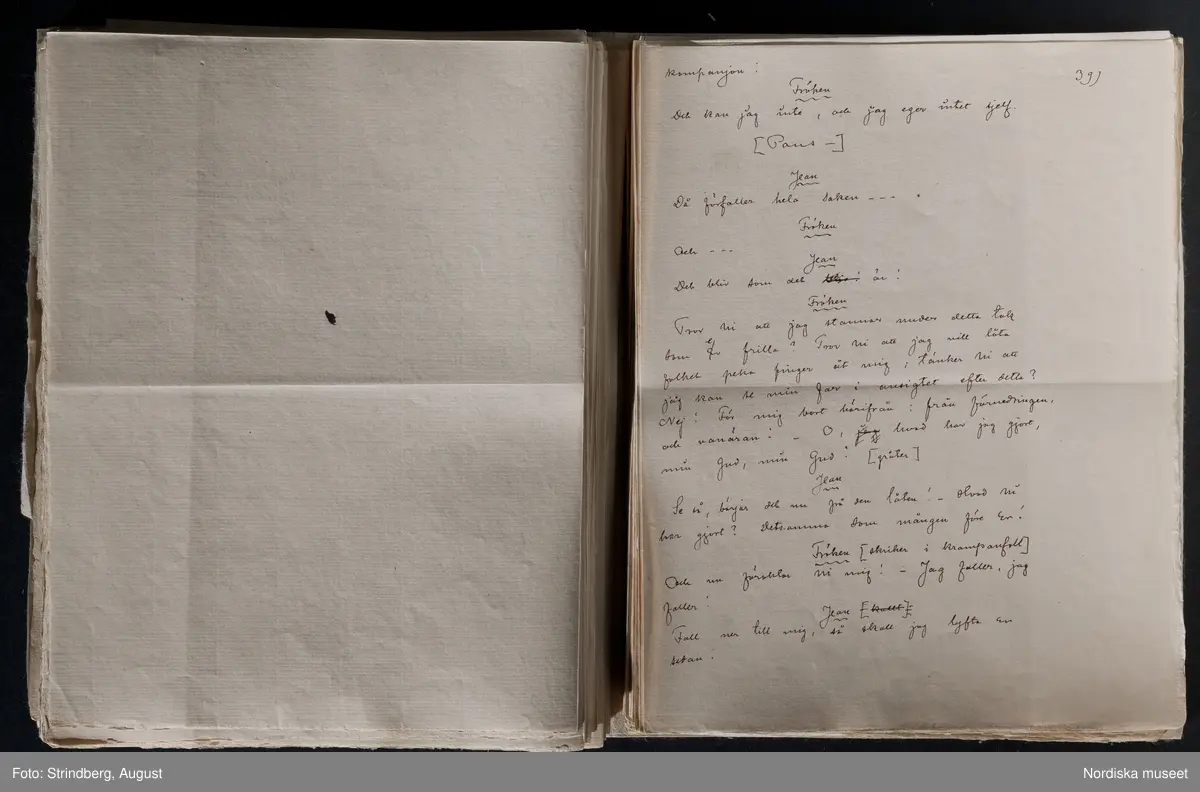 39)
kompanjon!
Fröken
Det kan jag inte, och jag eger intet sjelf.
[Paus —]
Jean
Då förfaller hela saken --- .
Fröken
Och ---
Jean
Det blir som det blir! är!
Fröken
Tror Ni att jag stannar under detta tak
som Er frilla? Tror Ni att jag vill låta
folket peka finger åt mig; tänker Ni att
jag kan se min far i ansigtet efter detta?
Nej! För mig bort härifrån; från förnedringen,
och vanäran! – O, jag hvad har jag gjort,
min Gud, min Gud! [gråter]
Jean
Se så, börjar det nu på den låten! – Hvad Ni
har gjort? Detsamma som mången före Er!
Fröken [skriker i krampanfall]
Och nu föraktar Ni mig! – Jag faller, jag
faller!
Jean [kallt]
Fall ner till mig, så skall jag lyfta Er
sedan!
Foto: Strindberg, August
Nordiska museet